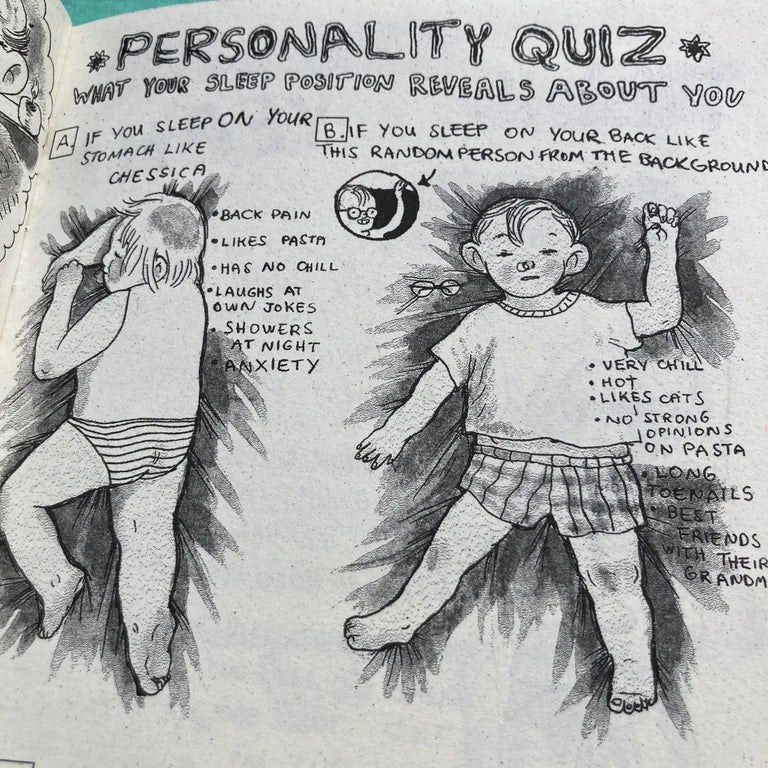 PERSONALITY QUIZ
WHAT YOUR SLEEP POSITION REVEALS ABOUT YOU
A. IF YOU SLEEP ON YOUR
STOMACH LIKE
CHESSICA
• BACK PAIN
• LIKES PASTA
• HAS NO CHILL
• LAUGHS AT
OWN JOKES
• SHOWERS
AT NIGHT
• ANXIETY
B. IF YOU SLEEP ON YOUR BACK LIKE
THIS RANDOM PERSON FROM THE BACKGROUND
• VERY CHILL
• HOT
• LIKES CATS
• NO STRONG
OPINIONS
ON PASTA
• LONG
TOENAILS
• BEST
FRIENDS
WITH THEIR
GRANDM